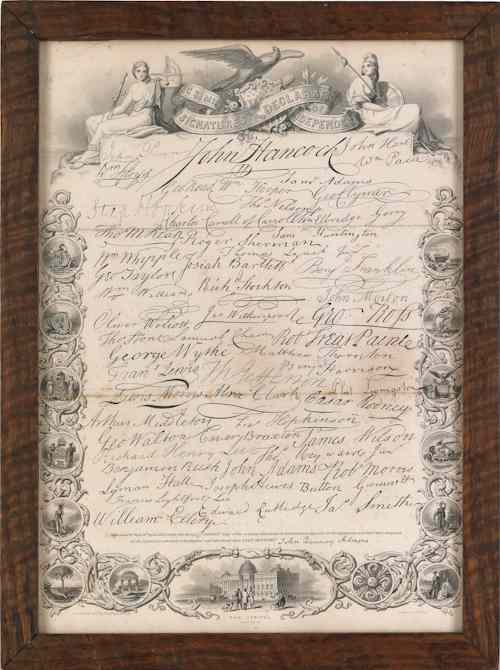 SIGNATURES DECLARATION OF INDEPENDENCE
John Penn John Hancock John Hart
Wm Paca
Saml Adams
Wm Hooper Geo Clymer
Step Hopkins Ths Nelson
Charles Carroll of Carrollton Elbridge Gerry
Tho M Kean Saml Huntington
Roger Sherman
Wm Whipple Thomas Lynch
Josiah Bartlett Benj Franklin
Geo Taylor
Wm Williams Richd Stockton
John Morton
Oliver Wolcott Jno Witherspoon Geo Ross
Tho Stone Samuel Chase Robt Treat Paine
George Wythe Matthew Thornton
Fran Lewis Th Jefferson Benj Harrison
Lewis Morris Abra Clark Cæsar Rodney Phil Livingston
Arthur Middleton Fras Hopkinson
Geo Walton Carter Braxton James Wilson
Richard Henry Lee Thos Heyward Jun
Benjamin Rush John Adams Robt Morris
Lyman Hall Joseph Hewes Button Gwinnett
Francis Lightfoot Lee
Edward Rutledge Jas Smith
William Ellery
John Quincy Adams
THE CAPITOL